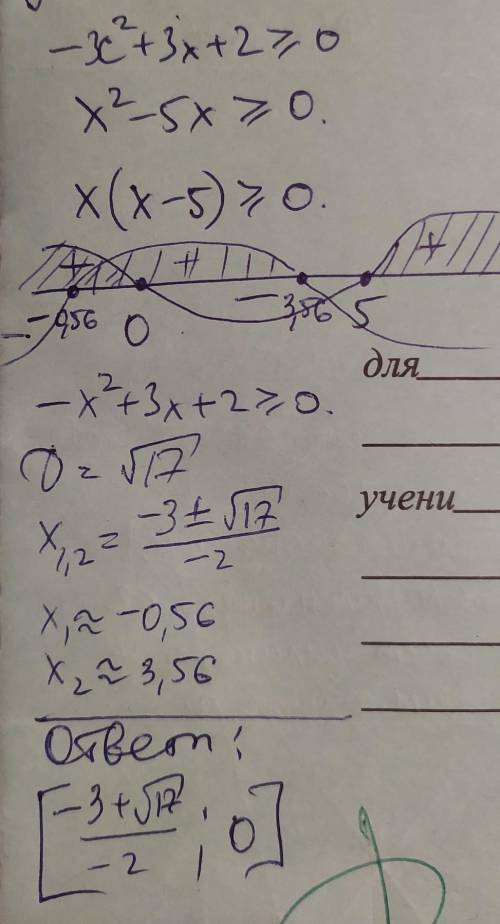 -x²+3x+2≥0
x²-5x≥0.
x(x-5)≥0.
+ + +
- -0,56 0 - 3,56 5
для
-x²+3x+2≥0.
D=√17
учени
x₁,₂=(-3±√17)/-2
x₁≈-0,56
x₂≈3,56
Ответ:
[(-3+√17)/-2; 0]